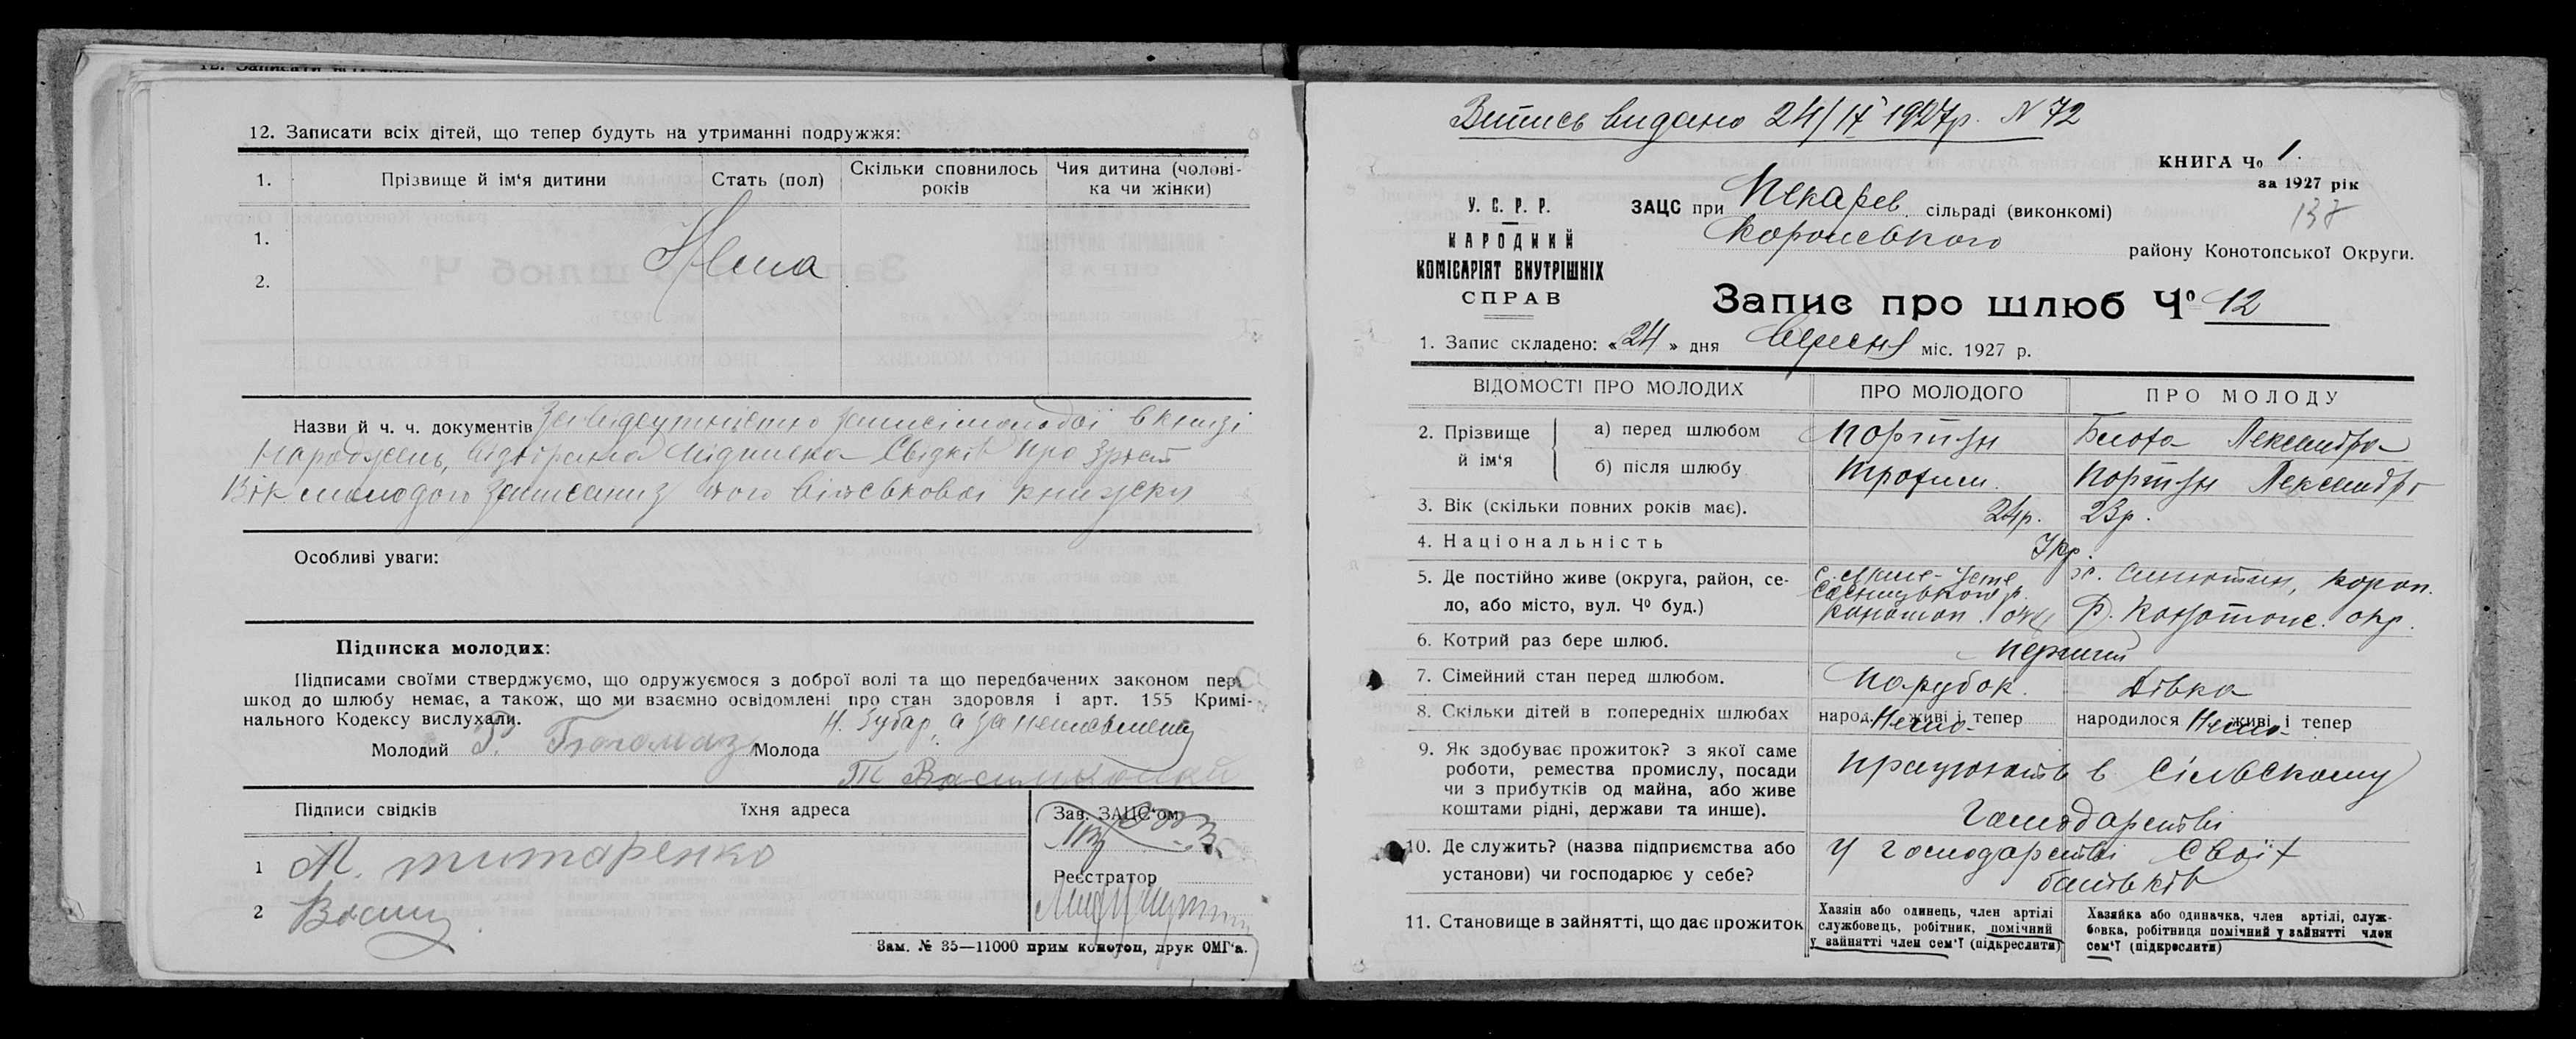 12. Записати всіх дітей, що тепер будуть на утриманні подружжя:
1. Прізвище й ім'я дитини Стать (пол) Скільки сповнилось років Чия дитина (чолові-ка чи жінки)
1.
2.
Нема
Назви й ч. ч. документів За відсутністю записі молодої в книзі
народжень, відібрана підписка свідків про зріст
Вік молодого записаний з його військової книжки
Особливі уваги:
Підписка молодих:
Підписами своїми стверджуємо, що одружуємося з доброї волі та що передбачених законом пере
шкод до шлюбу немає, а також, що ми взаємно освідомлені про стан здоровля і арт. 155 Кримі-
нального Кодексу вислухали.
Молодий Молода
Підписи свідків їхня адреса
1 М. титаренко
2
Зав. ЗАЦС'ом
Реєстратор
Зам. № 35—11000 прим конотоп, друк ОМГ'а.
Витись видано 24/IX 1927р. N 72
КНИГА Чо 1.
за 1927 рік
У. С. Р. Р.
НАРОДНИЙ
КОМІСАРІЯТ ВНУТРІШНІХ
СПРАВ
ЗАЦС при Пекарев сільраді (виконкомі)
138
Королевського району Конотопської Округи.
Запис про шлюб Чо 12
1. Запис складено: «24» дня Вересня міс. 1927 р.
ВІДОМОСТІ ПРО МОЛОДИХ ПРО МОЛОДОГО ПРО МОЛОДУ
2. Прізвище й ім'я
а) перед шлюбом Портун Лександра
б) після шлюбу Трохим. Портун Лександра
3. Вік (скільки повних років має). 24р. 23р.
4. Національність Укр.
5. Де постійно живе (округа, район, се-
ло, або місто, вул. Чо буд.)
Сосницького р.
Конотоп. окр
Синютин, короп.
р. Конотопс. окр.
6. Котрий раз бере шлюб. перший
7. Сімейний стан перед шлюбом. Парубок. Дівка
8. Скільки дітей в попередніх шлюбах народ. Нема живі і тепер народилося Нема живі і тепер
9. Як здобуває прожиток? з якої саме
роботи, ремества промислу, посади
чи з прибутків од майна, або живе
коштами рідні, держави та инше).
працюють в сільскому
господарстві
10. Де служить? (назва підприємства або
установи) чи господарює у себе?
У господарстві своїх
батьків
11. Становище в зайнятті, що дає прожиток
Хазяін або одинець, член артілі
службовець, робітник, помічний
у зайнятті член сем'ї (підкреслити)
Хазяйка або одиначка, член артілі, служ-
бовка, робітниця помічний у зайнятті член
сем'ї (підкреслити)